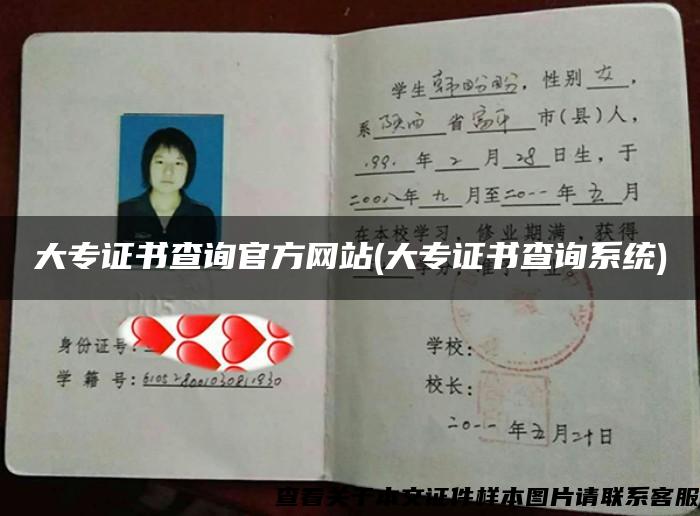 学生韩盼盼，性别女，
系陕西省富平市(县)人，
199.年2月28日生，于
二00八年九月至二0一一年五月
在本校学习，修业期满，获得
学分，准予毕业。
大专证书查询官方网站(大专证书查询系统)
身份证号：
学籍号：
学校：
校长：
二0一一年五月二十日
查看关于本文证件样本图片请联系客服